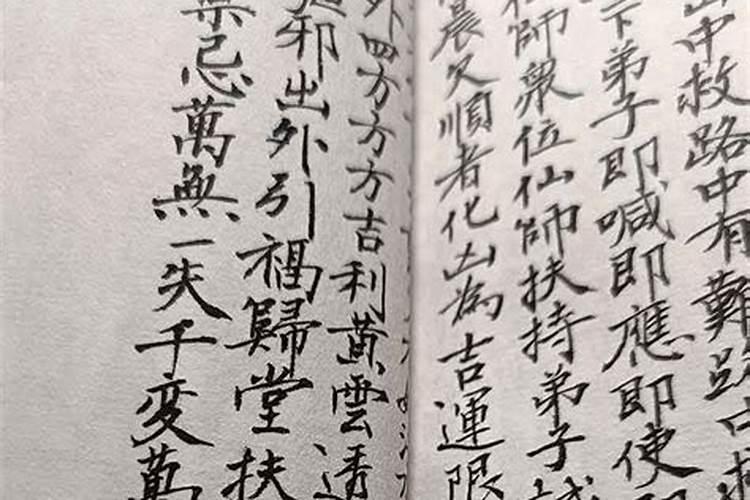 中救路中有難
下弟子即喊即應即使
師眾位仙師扶持弟子
晨欠順者化凶為吉運限
外四方方方吉利黃雲透
邪出外引福歸堂扶
禁忌萬無一失千变萬